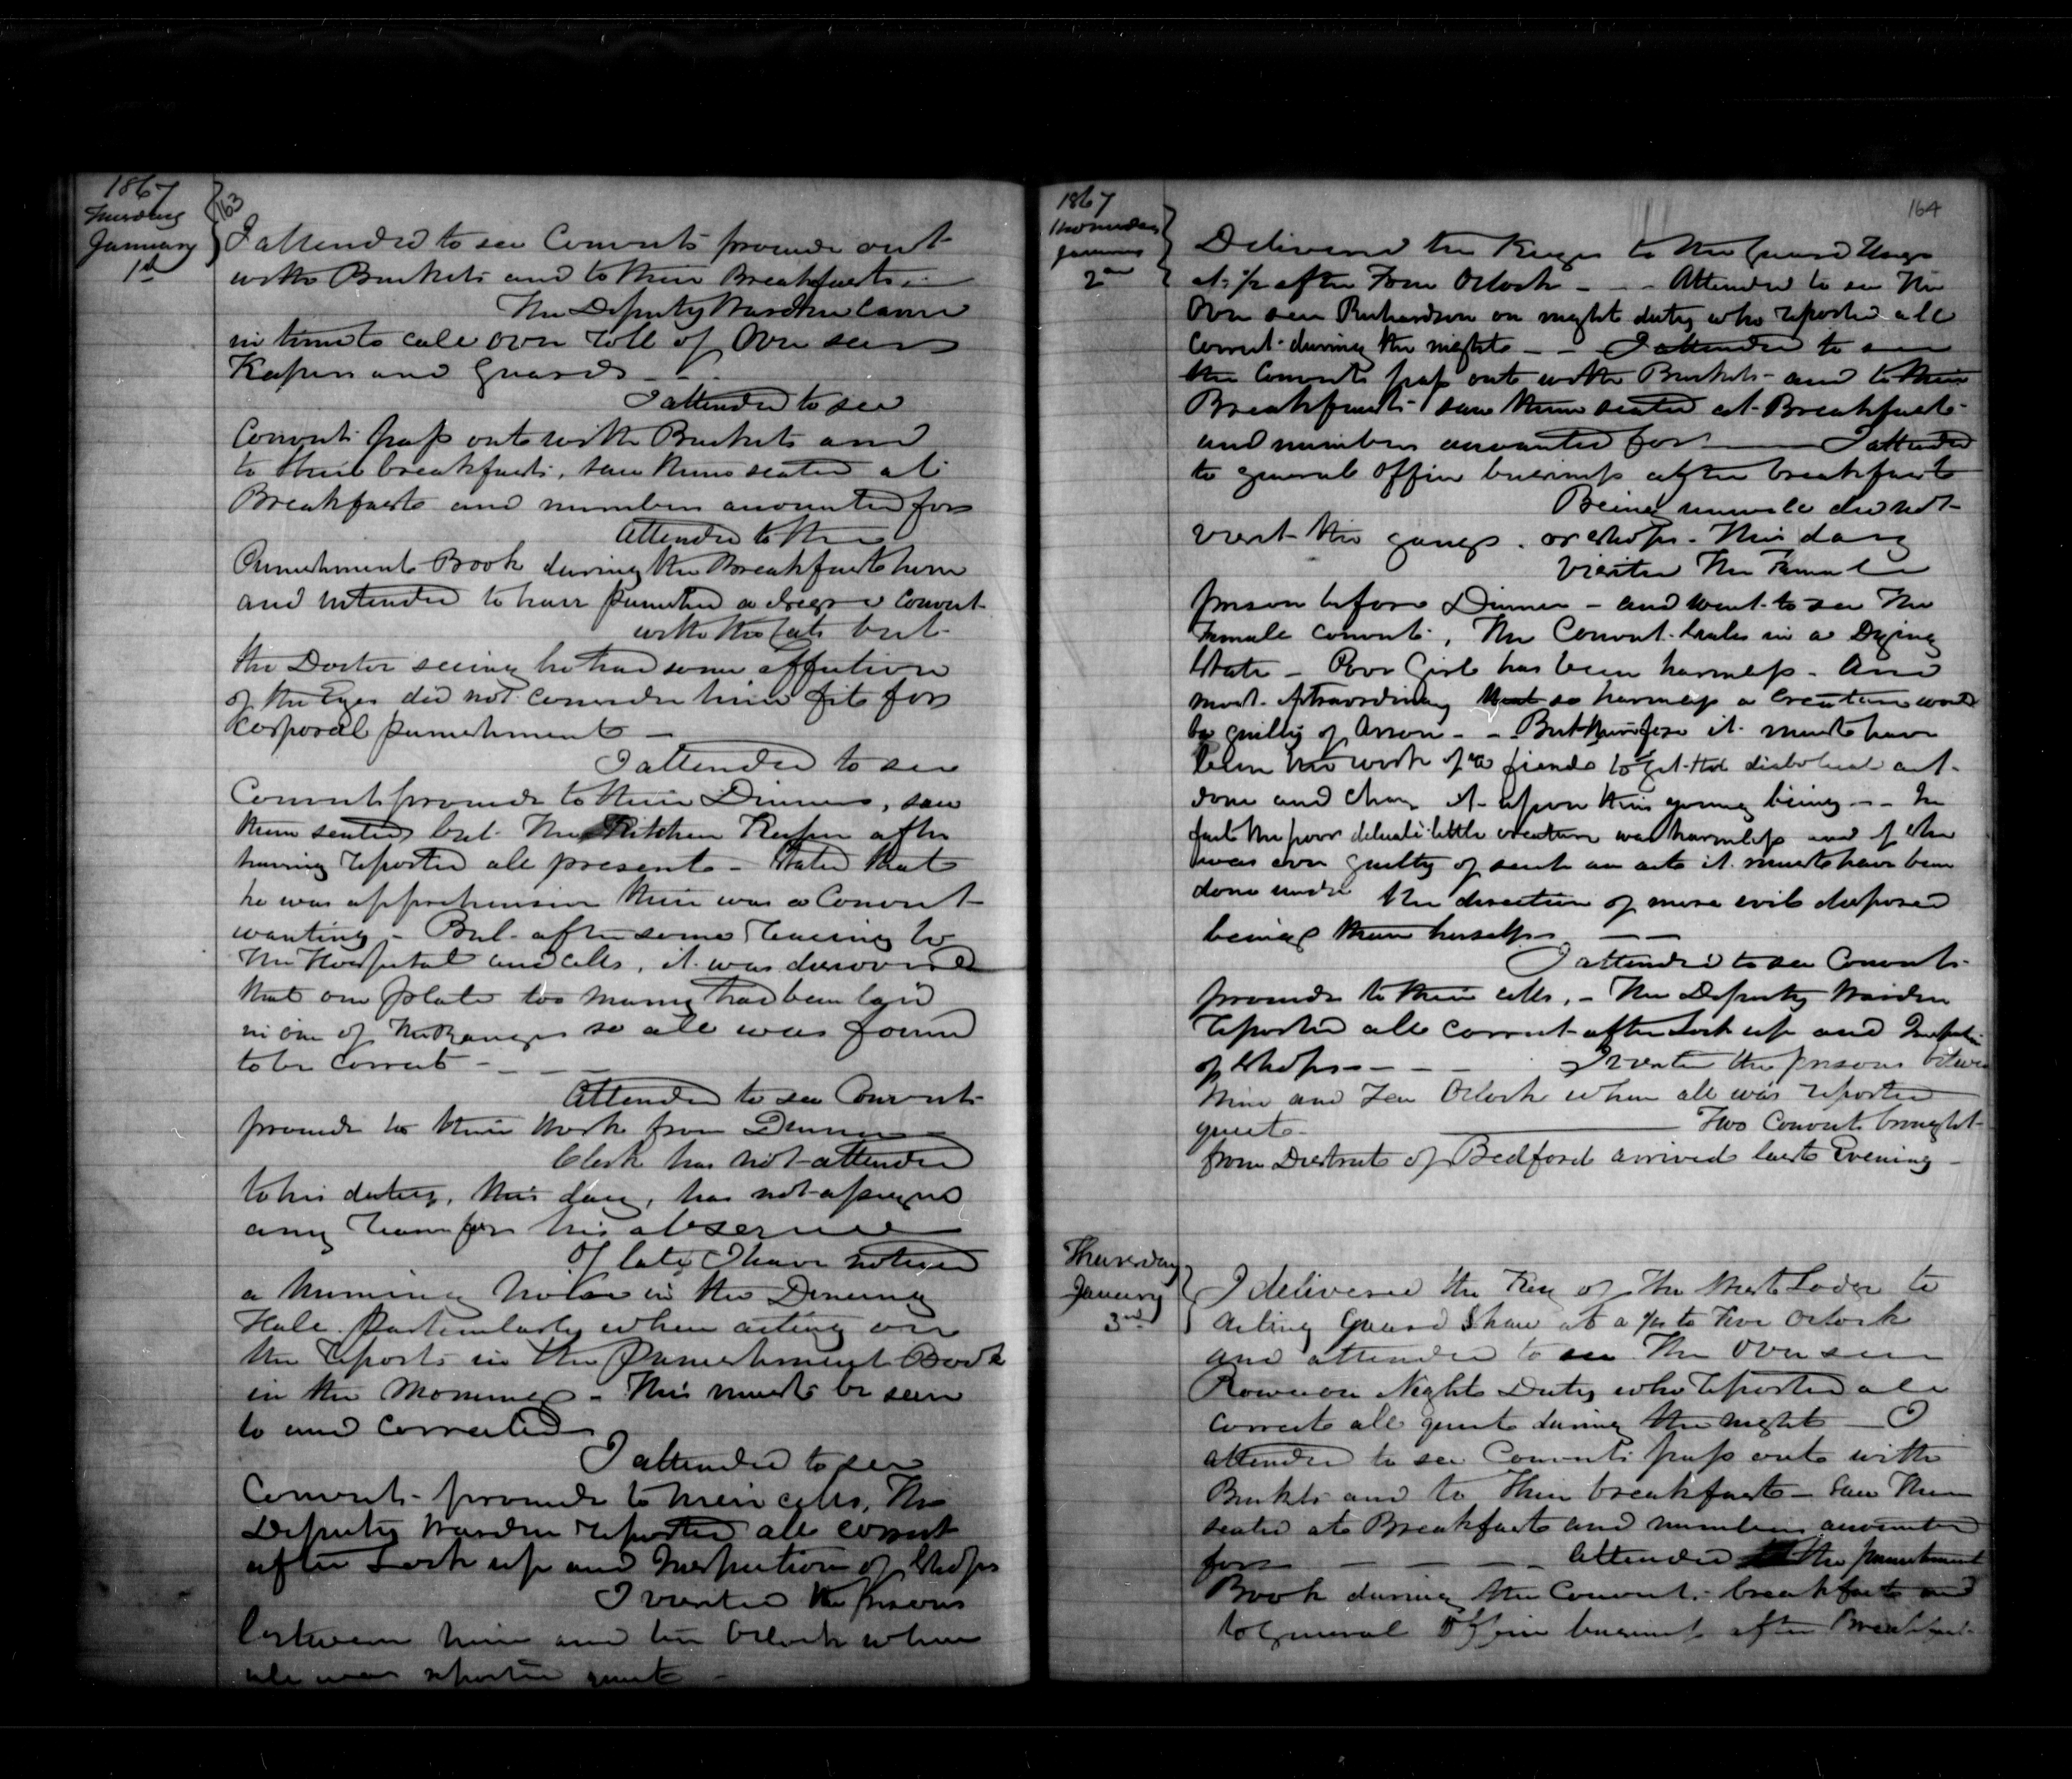 163
1867
Tuesday
January
1st
I attended to see Convicts proceed out
with Buckets and to their Breakfasts
The Deputy Warden came
in time to call over roll of Over seers
Keepers and Guards
I attended to see
Convicts pass out with Buckets and
to their breakfasts, saw them seated at
Breakfast and numbers accounted for
Attended to the
Punishment Book during the Breakfast hour
and intended to have punished a Convict
with the Cats but
the Doctor seeing he had some affection
of the Eyes did not consider him fit for
Corporal punishment
I attended to see
Convicts proceed to their Dinners, saw
them seated but The Kitchen Keeper after
having reported all present - Stated that
he was apprehensive there was a Convict
wanting - But after some to
The Hospital and cells, it was discovered
that one plate too many had been laid
in one of the Ranges so all was found
to be correct
Attended to see Convicts
proceed to their work from Dinner
Clerk has not attended
to his duties, this day, has not assigned
any reason for his absence
Of late I have noticed
a humming noise in the Dining
Hall particularly when acting on
the reports in the Punishment Book
in the Morning - This must be seen
to and corrected
I attended to see
Convicts proceed to their cells, The
Deputy Warden reported all correct
after Lock up and Inspection of Shops
I visited the prisons
between nine and ten Oclock when
all was reported quiet
164
1867
Wednesday
January
2nd
Delivered the Keys to the Guard
at ½ after Four Oclock - - - Attended to see The
Over seer Richardson on night duty who reported all
Correct during the night - - I attended to see
the Convicts pass out with Buckets and to their
Breakfasts saw them seated at Breakfast
and numbers accounted for I attended
to general Office business after breakfast
Being unwell did not
visit the gangs or shops this day
Visited The Female
prison before Dinner - and went to see The
Female convict, The Convict in a Dying
State - Poor Girl has been harmless - And
most extraordinary that so harmless a Creature could
be guilty of Arson - - But therefore it must have
been the work of a fiend to get the diabolical act
done and it upon this young being - - In
fact the poor delicate little creature was harmless and if she
was ever guilty of such an act it must have been
done under the direction of more evil disposed
beings than herself
I attended to see Convicts
proceed to their cells, - The Deputy Warden
reported all correct after Lock up and
of Shops - - - I visited the prisons between
Nine and Ten Oclock when all was reported
quiet Two Convicts brought
from District of Bedford arrived last Evening
Thursday
January
3rd
I delivered the Key of the West Lodge to
Acting Guard Shaw at a ¼ to Five Oclock
and attended to see The Over seer
Rowe on Night Duty who reported all
correct all quiet during the night - I
attended to see Convicts pass out with
Buckets and to their breakfasts - Saw them
seated at Breakfast and numbers accounted
for - - - - Attended to the punishment
Book during the Convicts breakfast and
to General Office business after Breakfast